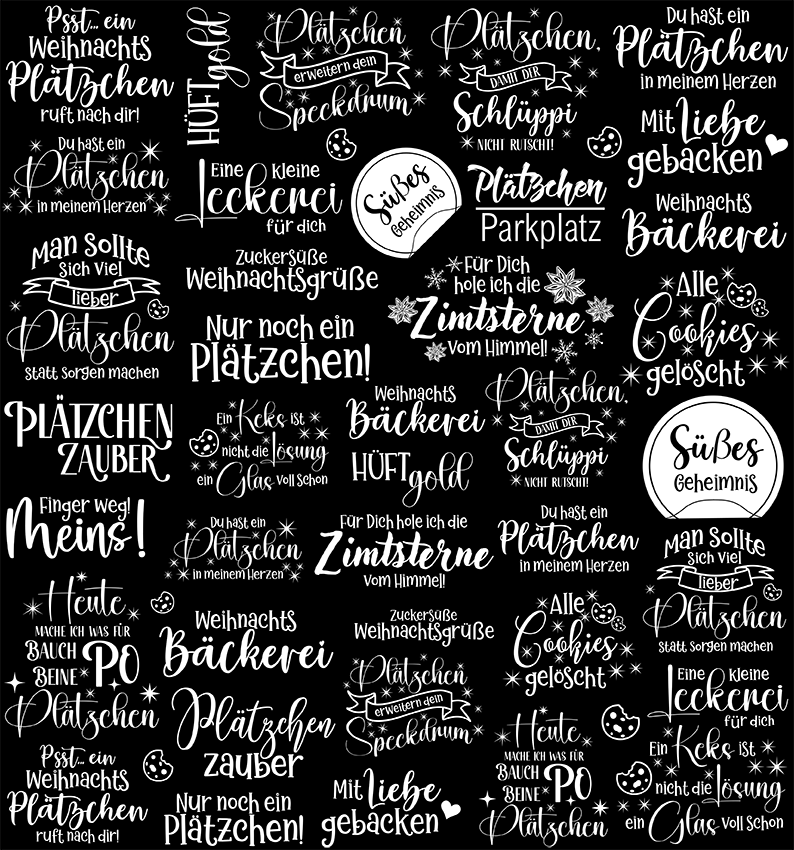 Psst... ein
Weihnachts
Plätzchen
ruft nach dir!
HÜFT
gold
Plätzchen
erweitern dein
Speckdrum
Plätzchen,
DAMIT DER
Schlüppi
NICHT RUTSCHT!
Du hast ein
Plätzchen
in meinem Herzen
Mit Liebe
gebacken
Du hast ein
Plätzchen
in meinem Herzen
Eine kleine
Leckerei
für dich
Süßes
Geheimnis
Plätzchen
Parkplatz
Weihnachts
Bäckerei
Man sollte
sich viel
lieber
Plätzchen
statt Sorgen machen
Zuckersüße
Weihnachtsgrüße
Für Dich
hole ich die
Zimtsterne
vom Himmel!
Alle
Cookies
gelöscht
Nur noch ein
Plätzchen!
PLÄTZCHEN
ZAUBER
Ein Keks ist
nicht die Lösung
ein Glas voll schon
Weihnachts
Bäckerei
HÜFT gold
Plätzchen,
DAMIT DER
Schlüppi
NICHT RUTSCHT!
Süßes
Geheimnis
Finger weg!
Meins!
Du hast ein
Plätzchen
in meinem Herzen
Für Dich hole ich die
Zimtsterne
vom Himmel!
Du hast ein
Plätzchen
in meinem Herzen
Man sollte
sich viel
lieber
Plätzchen
statt Sorgen machen
Heute
MACHE ICH WAS FÜR
BAUCH
BEINE
PO
Plätzchen
Weihnachts
Bäckerei
Zuckersüße
Weihnachtsgrüße
Alle
Cookies
gelöscht
Plätzchen
erweitern dein
Speckdrum
Eine kleine
Leckerei
für dich
Plätzchen
zauber
Heute
MACHE ICH WAS FÜR
BAUCH
BEINE
PO
Plätzchen
Ein Keks ist
nicht die Lösung
ein Glas voll schon
Psst... ein
Weihnachts
Plätzchen
ruft nach dir!
Nur noch ein
Plätzchen!
Mit Liebe
gebacken